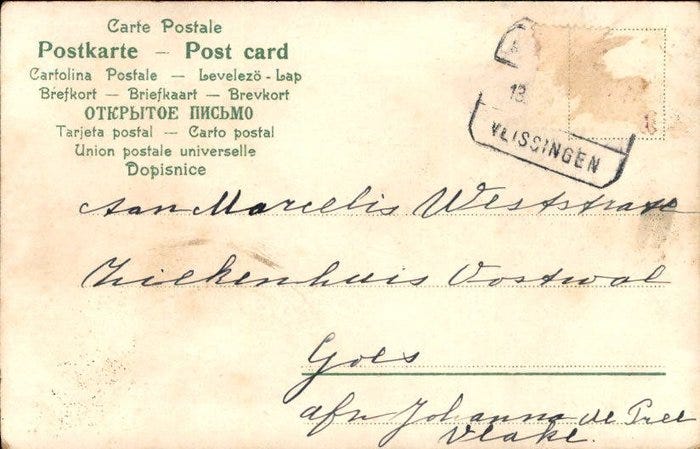 Carte Postale
Postkarte – Post card
Cartolina Postale — Levelezö-Lap
Brefkort — Briefkaart — Brevkort
ОТКРЫТОЕ ПИСЬМО
Tarjeta postal — Carto postal
Union postale universelle
Dopisnice
13
VLISSINGEN
Aan Marcelis Weststrate
Ziekenhuis Oostwal
Goes
afn Johanna de Pree
Vlake.